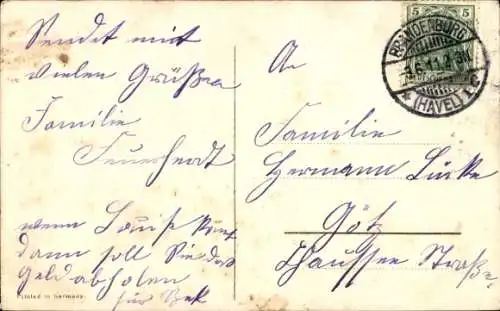 Sendet mit
vielen Grüßen
Familie
Feuerherdt
wenn Louise kommt
dann soll Sie das
Geld abholen
für
Printed in Germany
An
Familie
Hermann Lücke
Götz
Chaussee Straße.
5 5
BRANDENBURG
(HAVEL)